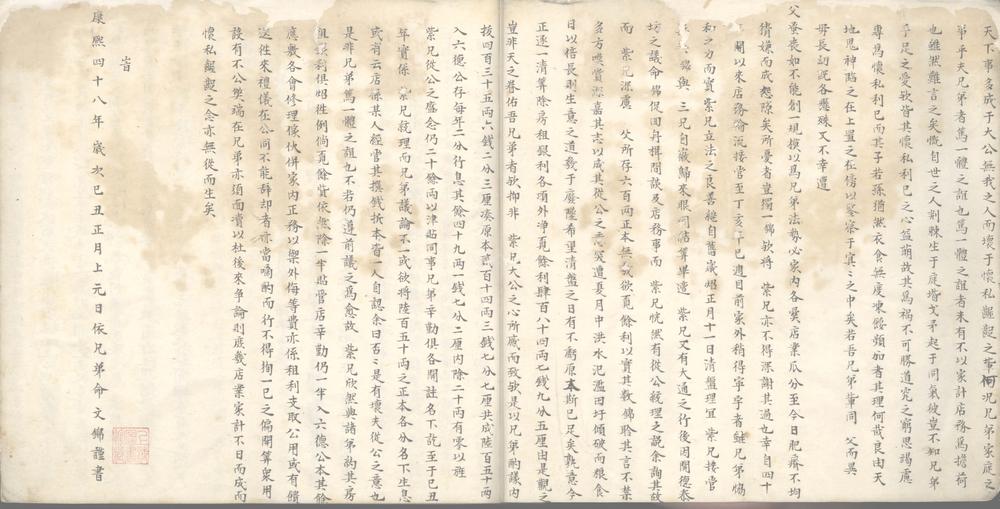 天下事多成于大公無我之人而壞于懷私齷齪之輩何況兄弟家庭之
弟乎夫兄弟者篤一體之誼也篤一體之誼者未有不以家計店務為擔荷
也雖然難言之矣慨自世之人荆棘生于庭堦戈矛起于同氣彼豈不知兄弟
手足之愛欤皆其懷私利己之心益崩故其為禍不可勝道究之窮思竭慮
專為懷私利已而其子若孫猶然衣食無度凍餒頻加者其理何哉良由天
地鬼神臨之在上置之在傍以鑒察于冥之中矣若吾兄弟輩同父而異
母長幼既各懸殊又不幸遭
父蚤丧如不能創一規模以為兄弟法勢必家内各爨店業瓜分至今日肥瘠不均
猜嫌而成怨隙矣所憂者豈獨一錦欤將紫兄亦不得深謝其過也幸自四十
開以來店務倫流接管至丁亥年已週目前家外稍得寧宇者雖兄弟惕
和之力而實紫兄立法之良善維自舊歲炤正月十一日清盤理宜紫兄接當
錦與三兄自歙歸來眼同結算畢遭紫兄又有大通之行後因閲德泰
坊之議命錦促回舟揖間談及店務事而紫兄恍然有從公統理之説余詢其故
而紫兄深慮父所存六百両正本無
欲覓餘利以實其数錦聆其言不禁
多方嘆賞深嘉其志以成其從公之
奕遭夏月中洪水汜濫田圩傾破而粮食
日以倍長則生意之道幾于廢墜希望清盤之日有不虧原本斯已足矣孰意今
正逐一清算除房租銀利各項外淨覓餘利肆百八十四両七錢九分五厘由是觀之
豈非天之眷佑吾兄弟者欤抑非紫兄大公之心所感而致欤是以兄弟酌議内
拨四百三十五両六錢二分三厘凑原本貳百十四両三錢七分七厘共成陸百五十両
入六德公存每年二分行息其餘四十九両一錢七分二厘内除二十両有零以旌
紫兄從公之盛念仍二十餘両以津貼同事兄弟辛勤俱各開註名下訖至于己丑
年實係紫兄統理而兄弟議論不一或欲將陸百五十両之正本各分名下生息
或有云店係某人經當其撰錢折本皆一人自認余曰否是有壞夫從公之意也
是非兄弟篤一體之誼也不若仍遵前議之為愈故紫兄欣然與諸弟約其房
租銀利俱炤徃例倘覓餘貲依然除一半貼管店辛勤仍一半入六德公本其餘
應敷各會修理傢伙併家内正務以禦外侮等費亦係租利支取公用或有饋
送徃來禮儀在公同不能辞却者亦當啇酌而行不得拘一己之偏開算衆用
設有不公獘端在兄弟亦須面瀆以杜後來爭論則庶幾店業家計不日而成而
懷私齷齪之念亦無從而生矣
旹
康熙四十八年歲次己丑正月上元日依兄弟命文錦謹書